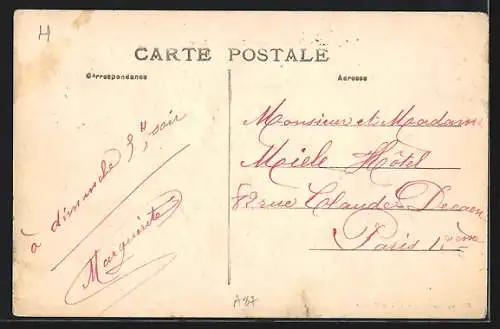 H
CARTE POSTALE
Correspondance
Adresse
à dimanche 3H, soir
Marguerite
Monsieur et Madame
Miele Hôtel
82 rue Claude Decaen
Paris 12ème
A87